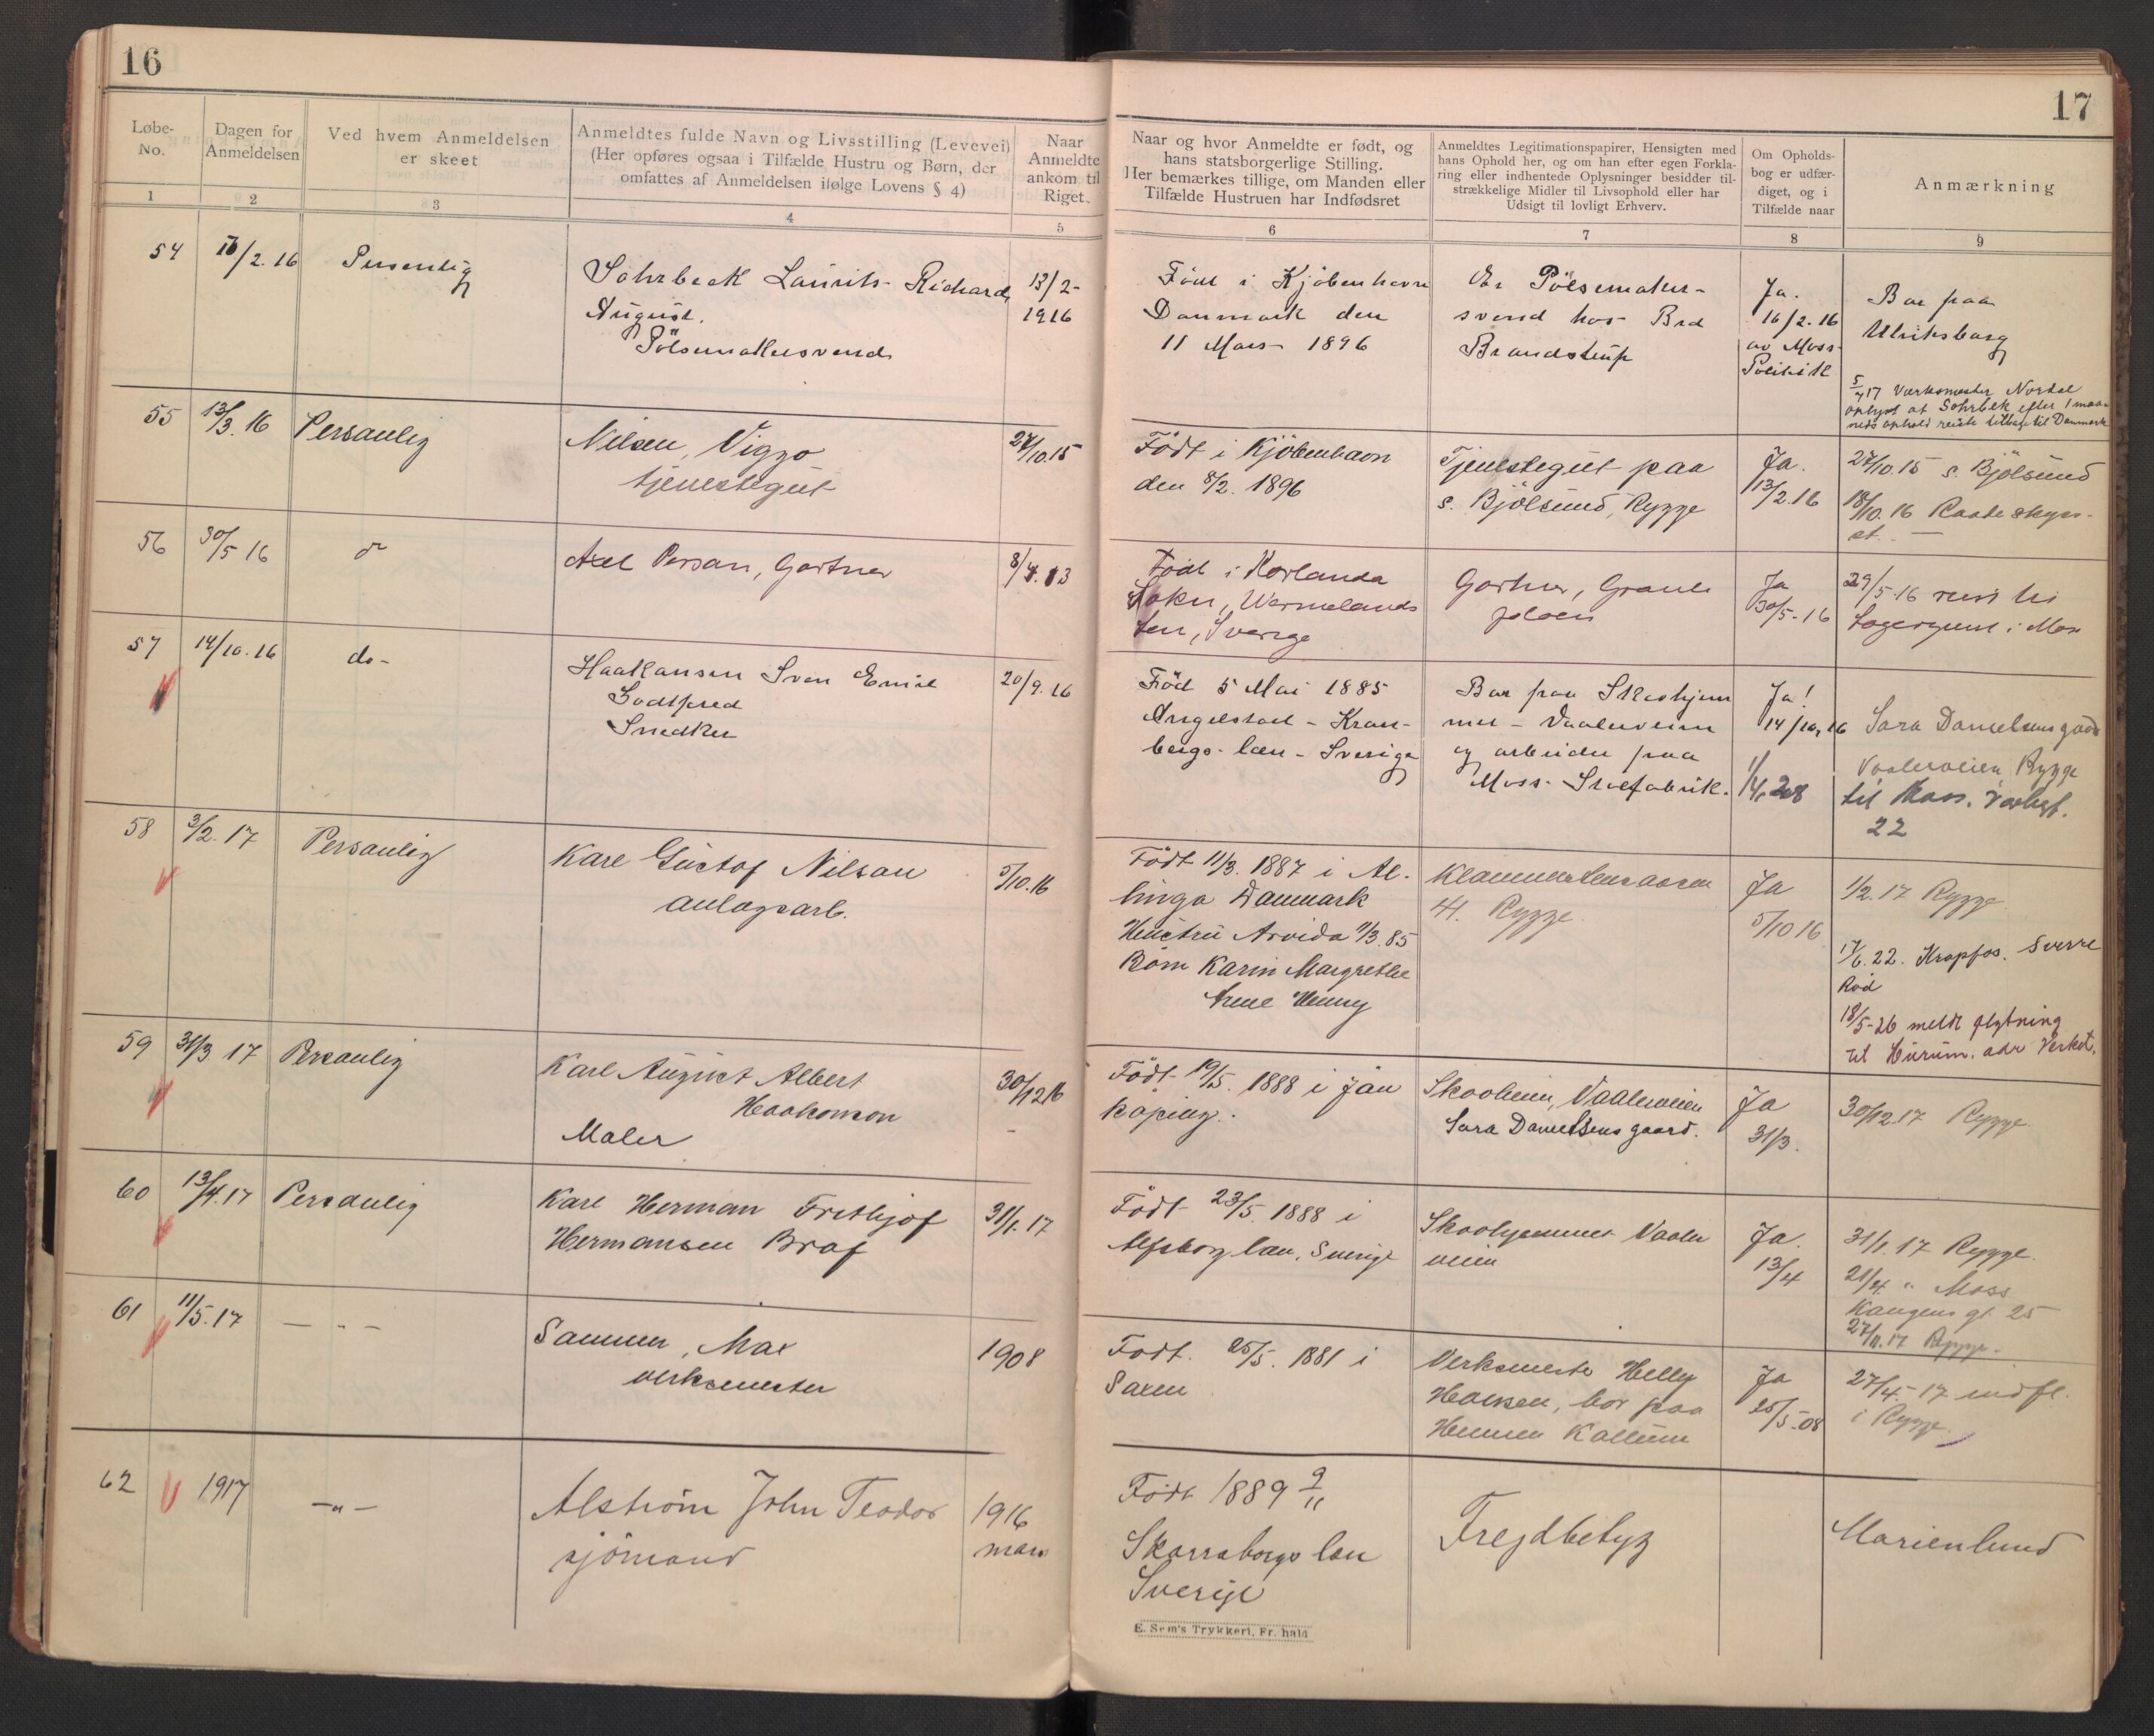 16
Løbe-
No.
Dagen for
Anmeldelsen
Ved hvem Anmeldelsen
er skeet
Anmeldtes fulde Navn og Livsstilling (Levevei)
(Her opføres ogsaa i Tilfælde Hustru og Børn, der
omfattes af Anmeldelsen ifølge Lovens § 4)
Naar
Anmeldte
ankom til
Riget.
1
2
3
4
5
54
16/2. 16
Personlig
Sohrbeck Laurits Richard
August.
Pölsemakersvend
13/2-
1916
55
13/3. 16
Personlig
Nilsen, Viggo
tjenestegut
27/10.15
56
30/5 16
do
Axel Person, Gartner
8/4.13
57
14/10.16
do-
Haakansen Sven Emil
Godtfred
Snedker
20/9.16
58
3/2. 17
Personlig
Karl Gustaf Nilsson
anlægsarb.
5/10.16
59
31/3. 17
Personlig
Karl August Albert
Haakonson
Maler
30/12 16
60
13/4.17
Personlig
Karl Herman Frithjof
Hermansen Braf
31/1.17
61
11/5.17
— " —
Sammer, Max
verksmester
1908
62
1917
—"—
Alström John Teodor
sjömand
1916
mars
17
Naar og hvor Anmeldte er født, og
hans statsborgerlige Stilling.
Her bemærkes tillige, om Manden eller
Tilfælde Hustruen har Indfødsret
Anmeldtes Legitimationspapirer, Hensigten med
hans Ophold her, og om han efter egen Forkla-
ring eller indhentede Oplysninger besidder til-
strækkelige Midler til Livsophold eller har
Udsigt til lovligt Erhverv.
Om Opholds-
bog er udfær-
diget, og i
Tilfælde naar
Anmærkning
6
7
8
9
Född i Kjöbenhavn
Danmark den
11 Mars 1896
Er Pölsemaker-
svend hos Brd
Brandstrup
Ja.
16/2.16
av Moss
Politik
Bor paa
Ulriksborg
5/7 17 Værksmester Nordal
oplyst at Sohrbek efter 1 maa-
neds ophold reiste tilbage til Danmark
Födt i Kjöbenhavn
den 8/2. 1896
Tjenestegut paa
s. Bjölsund, Rygge
Ja.
13/2.16
27/10.15 s. Bjölsund
18/10.16 Raade skyss-
st. —
Född i Korlanda
Sokn, Wermelands
len, Sverige
Gartner,
Ja
30/5-16
29/5-16
i Moss
Född 5 Mai 1885
Angelstad - Kron-
bergs- læn - Sverige
Bor paa Skoghjem
met - Vaalerveien
og arbeider paa
Moss Staalfabrik.
Ja!
14/10, 16
1/4, 28
Sara Danielsens gaard
Vaalerveien, Rygge
til Moss. Varbgt.
22
Födt 11/3. 1887 i Al-
linga Danmark
Hustru Arvida 11/3.85
Börn Karin Margrethe
Arne Henry
41. Rygge.
Ja
5/10 16
1/2.17 Rygge
17/6.22. Krapfos. Sverre
Röd
18/5-26 meldt flytning
til Hurum. adr Verket.
Födt 19/5. 1888 i Jön
köping.
Skooheim, Vaalerveien
Sara Danielsens gaard.
Ja
31/3.
30/12.17 Rygge
Födt 23/5. 1888 i
Alfsborg læn, Sverige
Skoohjemmet Vaaler
veien
Ja.
13/4
31/1.17 Rygge.
21/4. " Moss
Kongens gt. 25
27/11.17 Rygge.
Födt. 25/5. 1881 i
Saxen
Verksmester Helly
Hansen, bor paa
Henrien Kallum
Ja
25/5-08
27/4-17 indfl.
i Rygge.
Födt 1889 9/11
Skaraborgs læn
Sverige
Frejdbetyg
Marienlund
E. Sem's Trykkeri, Fr.hald